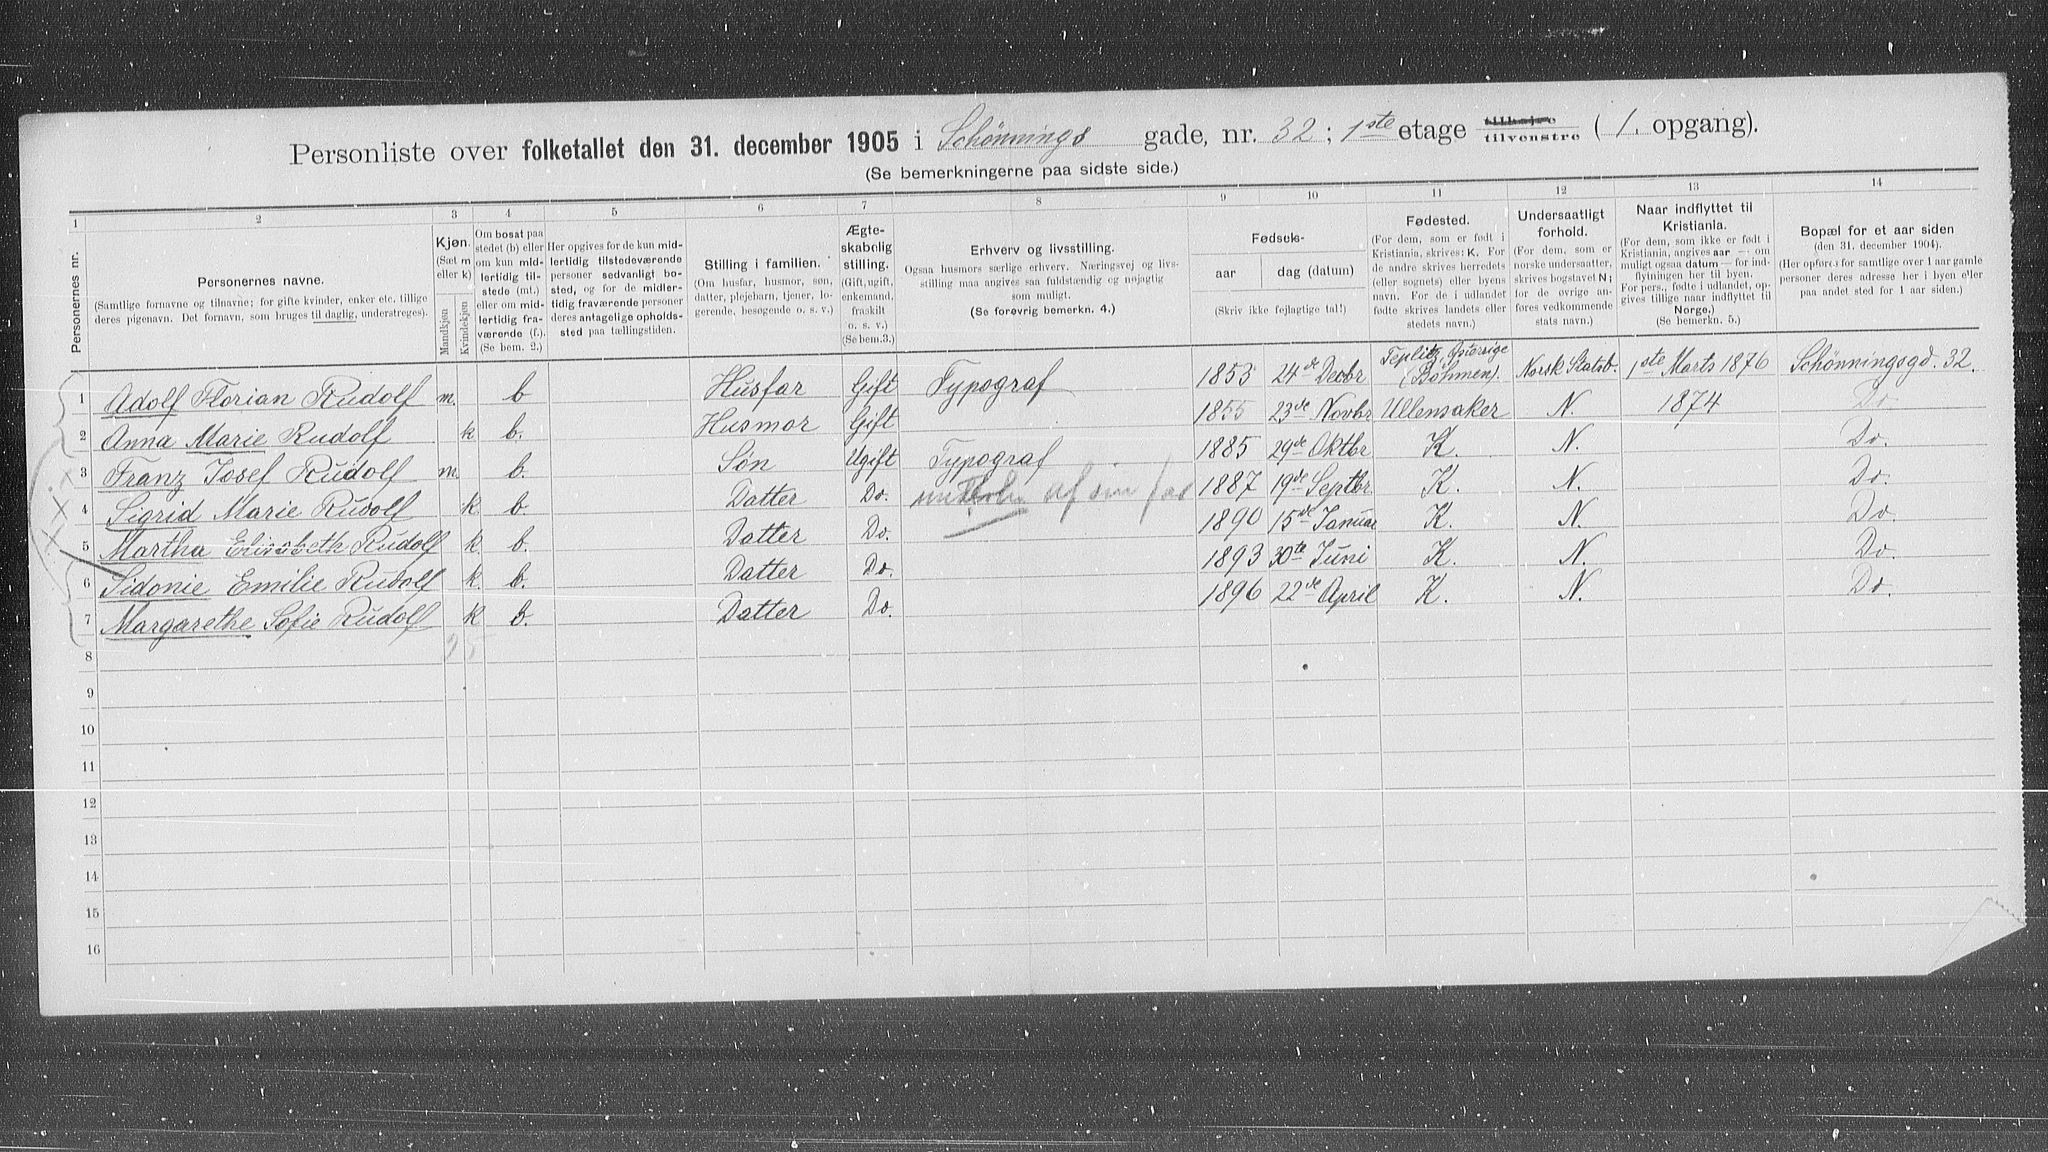 Personliste over folketallet den 31. december 1905 i Schønnings gade, nr. 32; 1ste etage tilhøjre tilvenstre (1. opgang).
(Se bemerkningerne paa sidste side.)
1 2 3 4 5 6 7 8 9 10 11 12 13 14
Personernes nr.
Personernes navne.
(Samtlige fornavne og tilnavne; for gifte kvinder, enker etc. tillige
deres pigenavn. Det fornavn, som bruges til daglig, understreges).
Kjøn.
(Sæt m
eller k)
Mandkjøn
Kvindekjøn
Om bosat paa
stedet (b) eller
om kun mid-
lertidig til-
stede (mt.)
eller om mid-
lertidig fra-
værende (f.).
(Se bem. 2.)
Her opgives for de kun mid-
lertidig tilstedeværende
personer sedvanligt bo-
sted, og for de midler-
tidig fraværende personer
deres antagelige opholds-
sted paa tællingstiden.
Stilling i familien.
(Om husfar, husmor, søn,
datter, plejebarn, tjener, lo-
gerende, besøgende o. s. v.)
Ægte-
skabelig
stilling.
(Gift, ugift,
enkemand,
fraskilt
o. s. v.)
(Se bem.3.)
Erhverv og livsstilling.
Ogsaa husmors særlige erhverv. Næringsvej og livs-
stilling maa angives saa fuldstændig og nøjagtig
som muligt.
(Se forøvrig bemerkn. 4.)
Fødsels-
aar
dag (datum)
(Skriv ikke fejlagtige tal!)
Fødested.
(For dem, som er født i
Kristiania, skrives: K. For
de andre skrives herredets
(eller sognets) eller byens
navn. For de i udlandet
fødte skrives landets eller
stedets navn.)
Undersaatligt
forhold.
(For dem, som er
norske undersaatter,
skrives bogstavet N;
for de øvrige an-
føres vedkommende
stats navn.)
Naar indflyttet til
Kristiania.
(For dem, som ikke er født i
Kristiania, angives aar — om
muligt ogsaa datum — for ind-
flytningen her til byen.
For pers., fødte i udlandet, op-
gives tillige naar indflyttet til
Norge.)
(Se bemerkn. 5.)
Bopæl for et aar siden
(den 31. december 1904).
(Her opføres for samtlige over 1 aar gamle
personer deres adresse her i byen eller
paa andet sted for 1 aar siden.)
1 Adolf Florian Rudolf m. b Husfar Gift Typograf 1853 24de Decbr Teplitz, Østerrige (Bøhmen). Norsk Statsb. 1ste Marts 1876 Schönningsgd. 32.
2 Anna Marie Rudolf k b. Husmor Gift 1855 23de Novbr Ullensaker N. 1874 Do
3 Franz Josef Rudolf m. b. Søn Ugift Typograf 1885 29de Oktbr K. N. Do.
4 Sigrid Marie Rudolf k b. Datter Do. af sin far 1887 19de Septbr. K. N. Do.
5 Martha Elisabeth Rudolf k. b. Datter Do. 1890 15de Januar K. N. Do.
6 Sidonie Emilie Rudolf k. b. Datter Do. 1893 30te Juni K. N. Do.
7 Margarethe Sofie Rudolf k b. Datter Do. 1896 22de April K. N. Do.
8
9
10
11
12
13
14
15
16